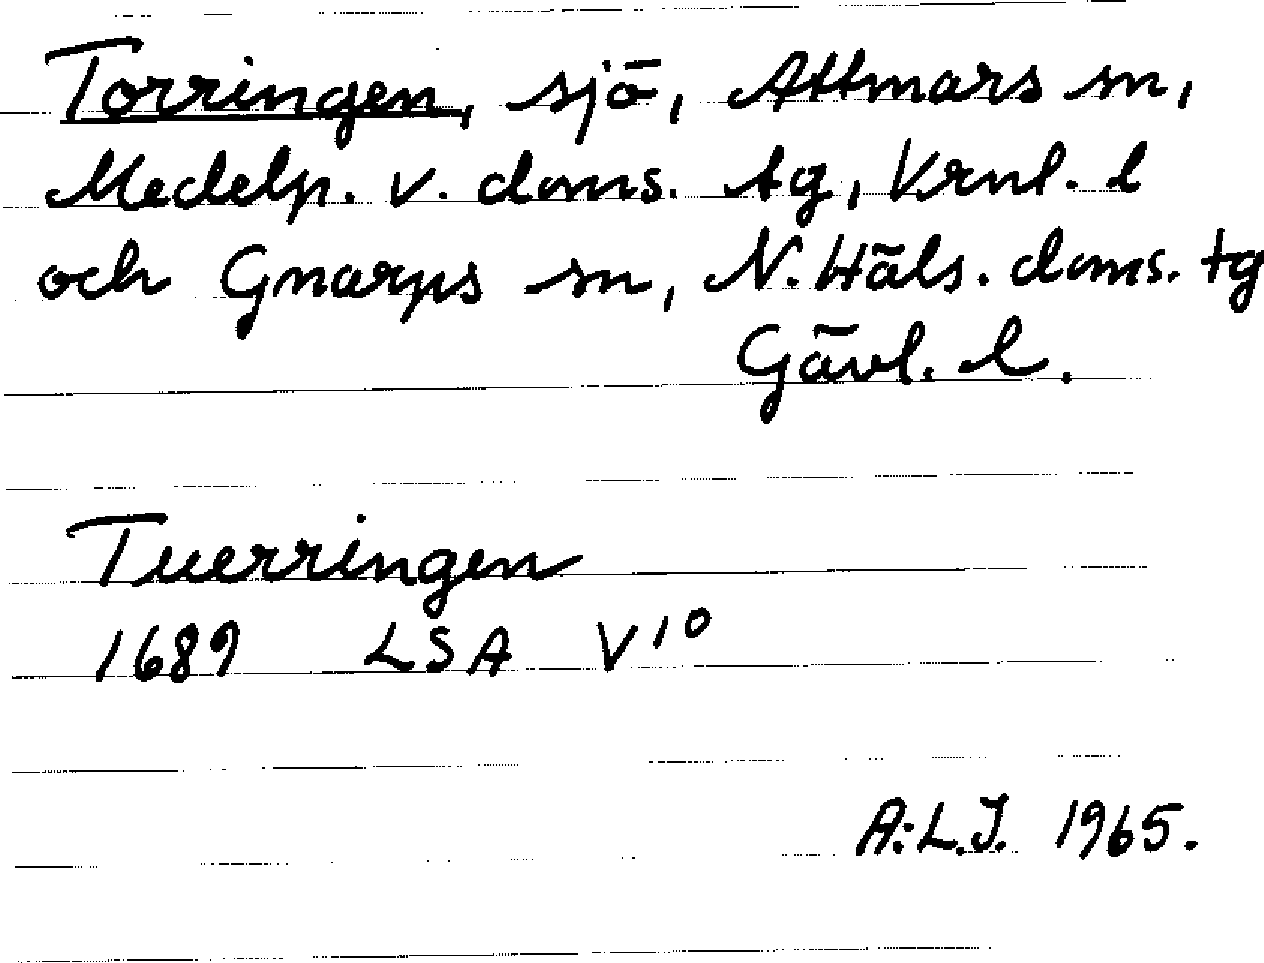 Torringen, sjö, Attmars sn,
Medelp. v. doms. tg, Vrnl. l
och Gnarps sn, N. Häls. doms. tg
Gävl. l.
Tuerringen
1689 LSA V10
A:L.J. 1965.